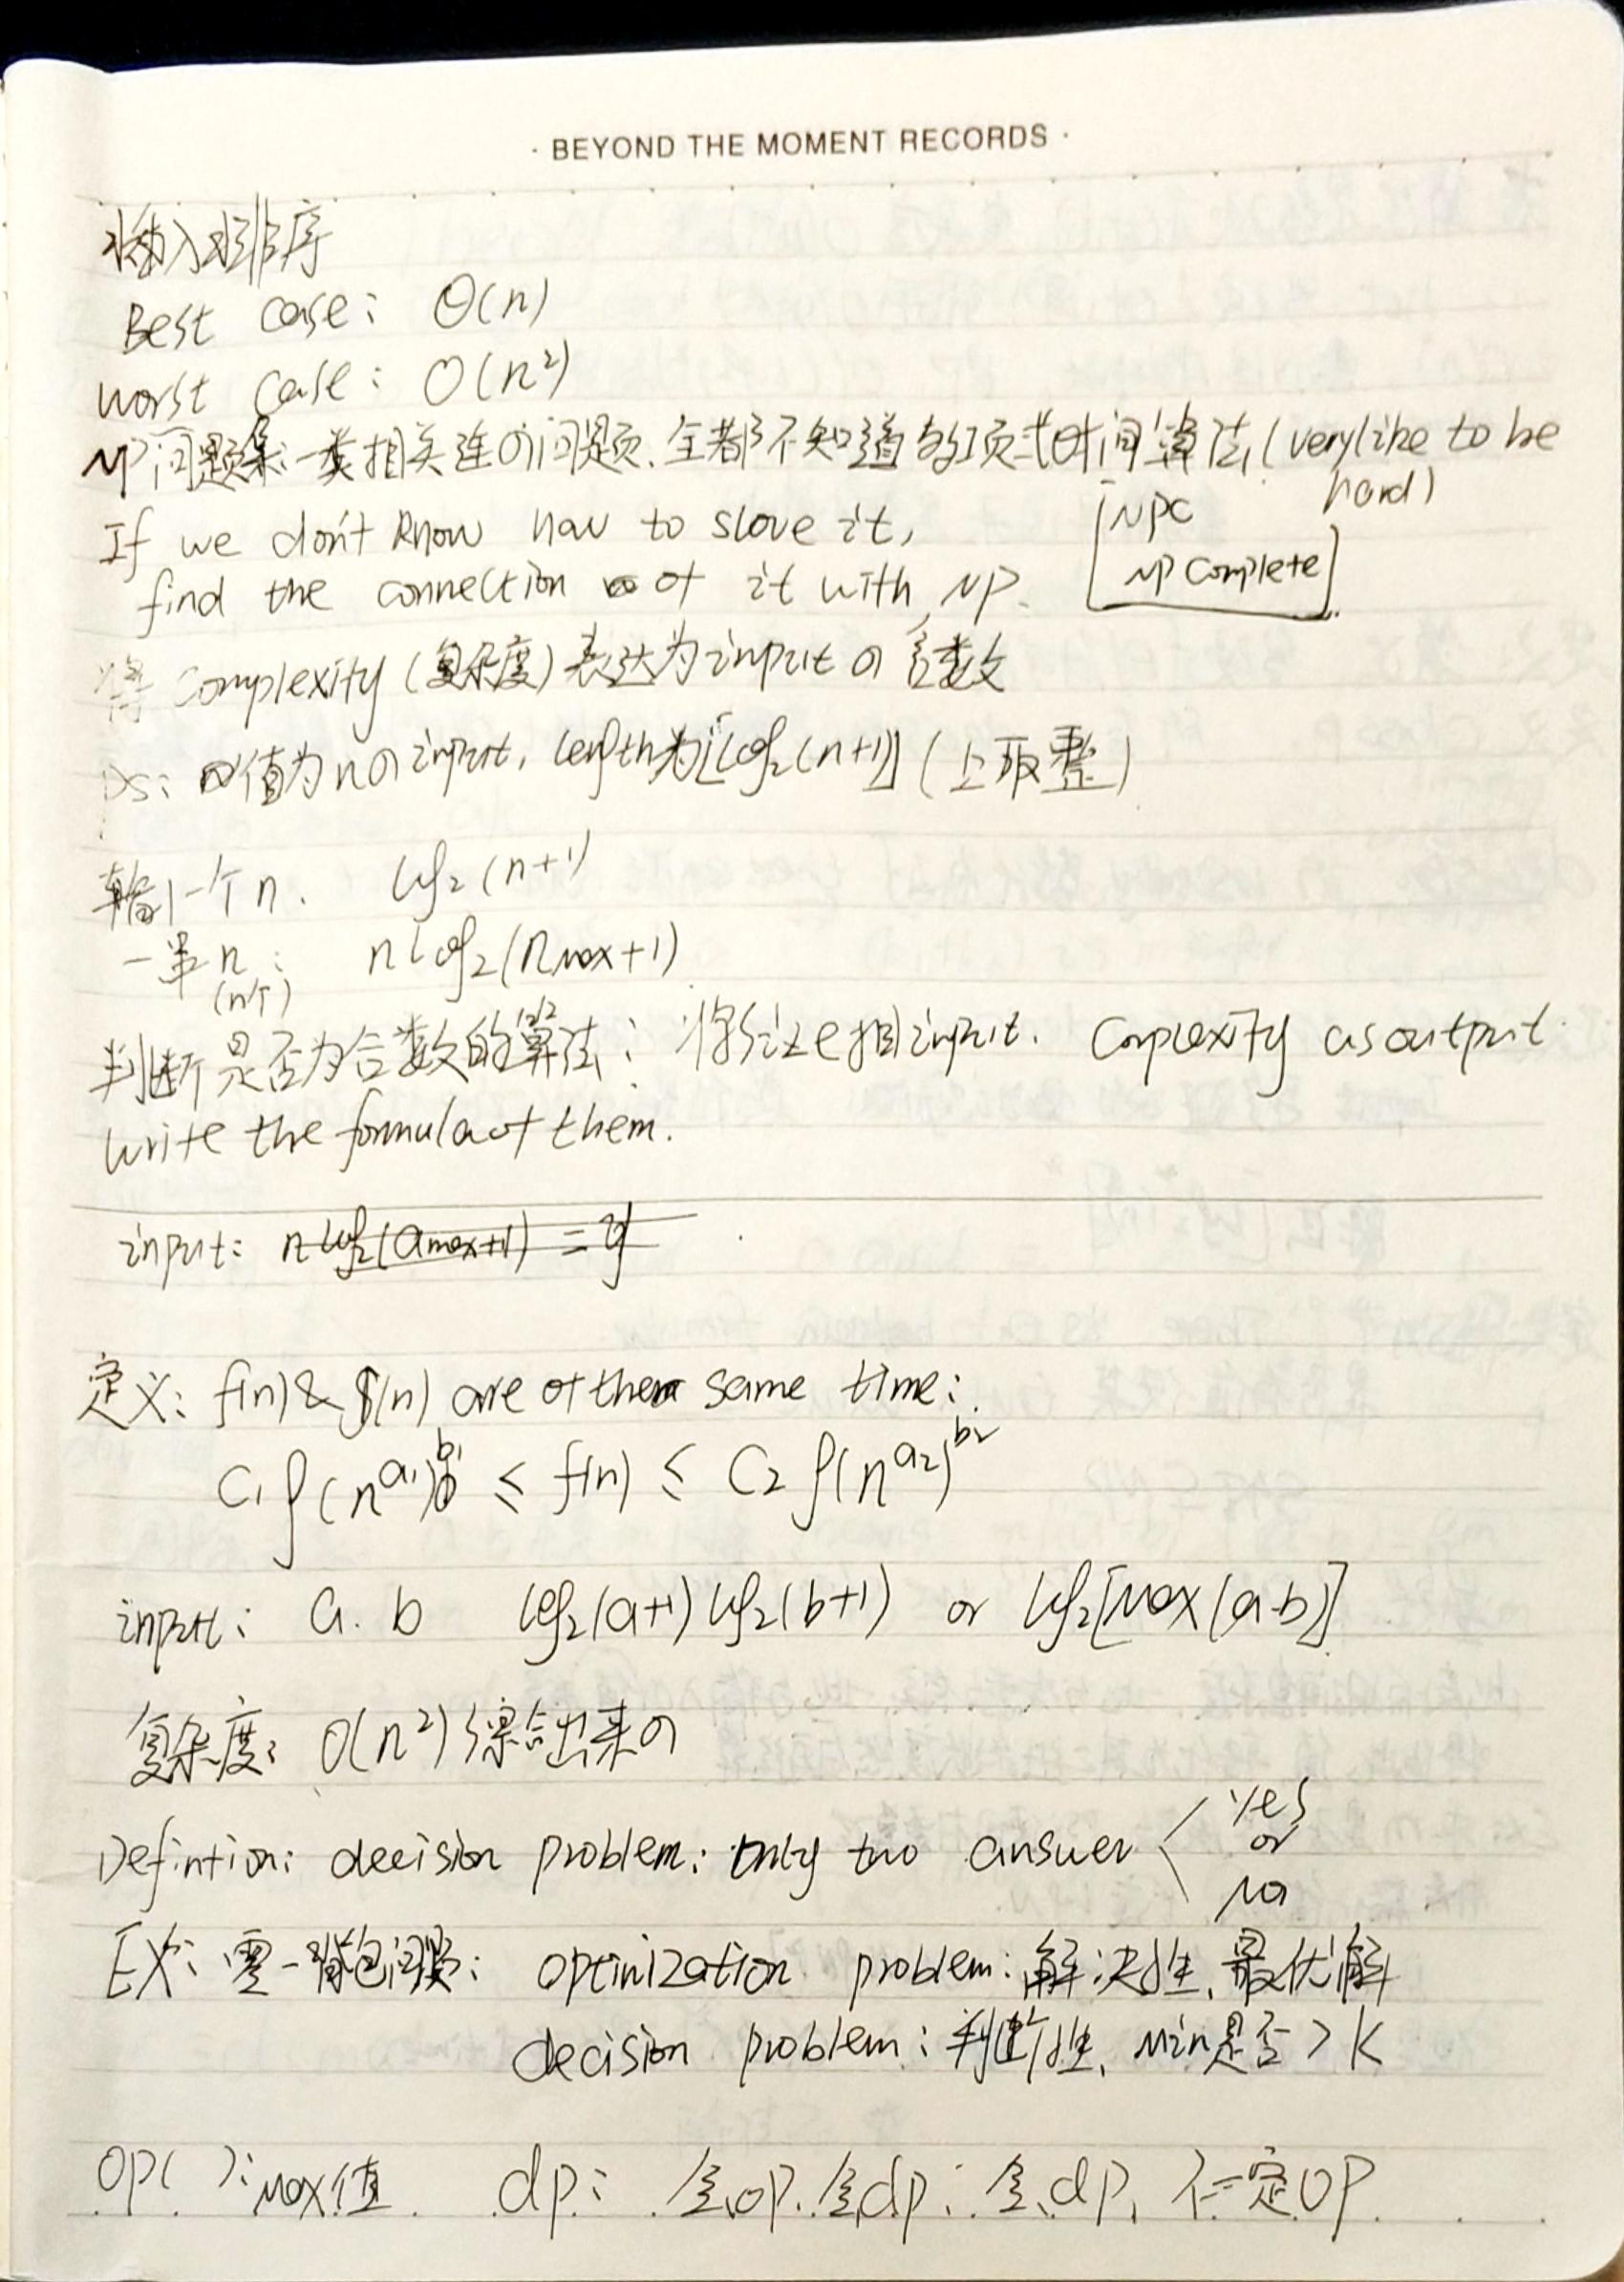 · BEYOND THE MOMENT RECORDS ·
插入排序
Best case: Θ(n)
worst case: O(n²)
NP问题集:一类相关连の问题、全都不知道多项式时间算法,(very like to be hard)
[NPC
NP complete]
If we don't know how to slove it,
find the connection of it with NP.
将 complexity (复杂度) 表达为 input の 函数
值为nの input, length为⌈log₂(n+1)⌉ (上取整)
输1个 n. log₂(n+1)
一串n: n log₂(nmax+1)
(n个)
判断是否为合数的算法: input. complexity as output
write the formula of them.
input: n log₂(amax+1) = y
定义: f(n) & g(n) are of the same time:
C₁g(n^a₁)^b₁ ≤ f(n) ≤ C₂g(n^a₂)^b₂
input: a. b log₂(a+1) log₂(b+1) or log₂[Max(a.b)]
复杂度: O(n²) 综合出来の
Defintion: decision problem: only two answer < yes
or
No
EX: 零一背包问题: optimization problem: 解决性、最优解
decision problem: 判断性、Min是否 > K
OP( ): Max值 dp: 会op.会dp; 会dp, 不一定OP